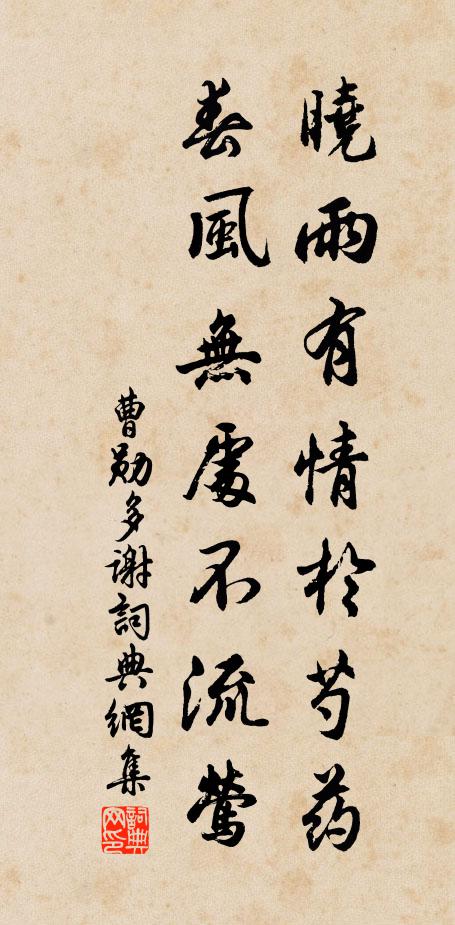 曉雨有情於芍药
春風無處不流莺
曹勋多謝詞典網集
詞典网印